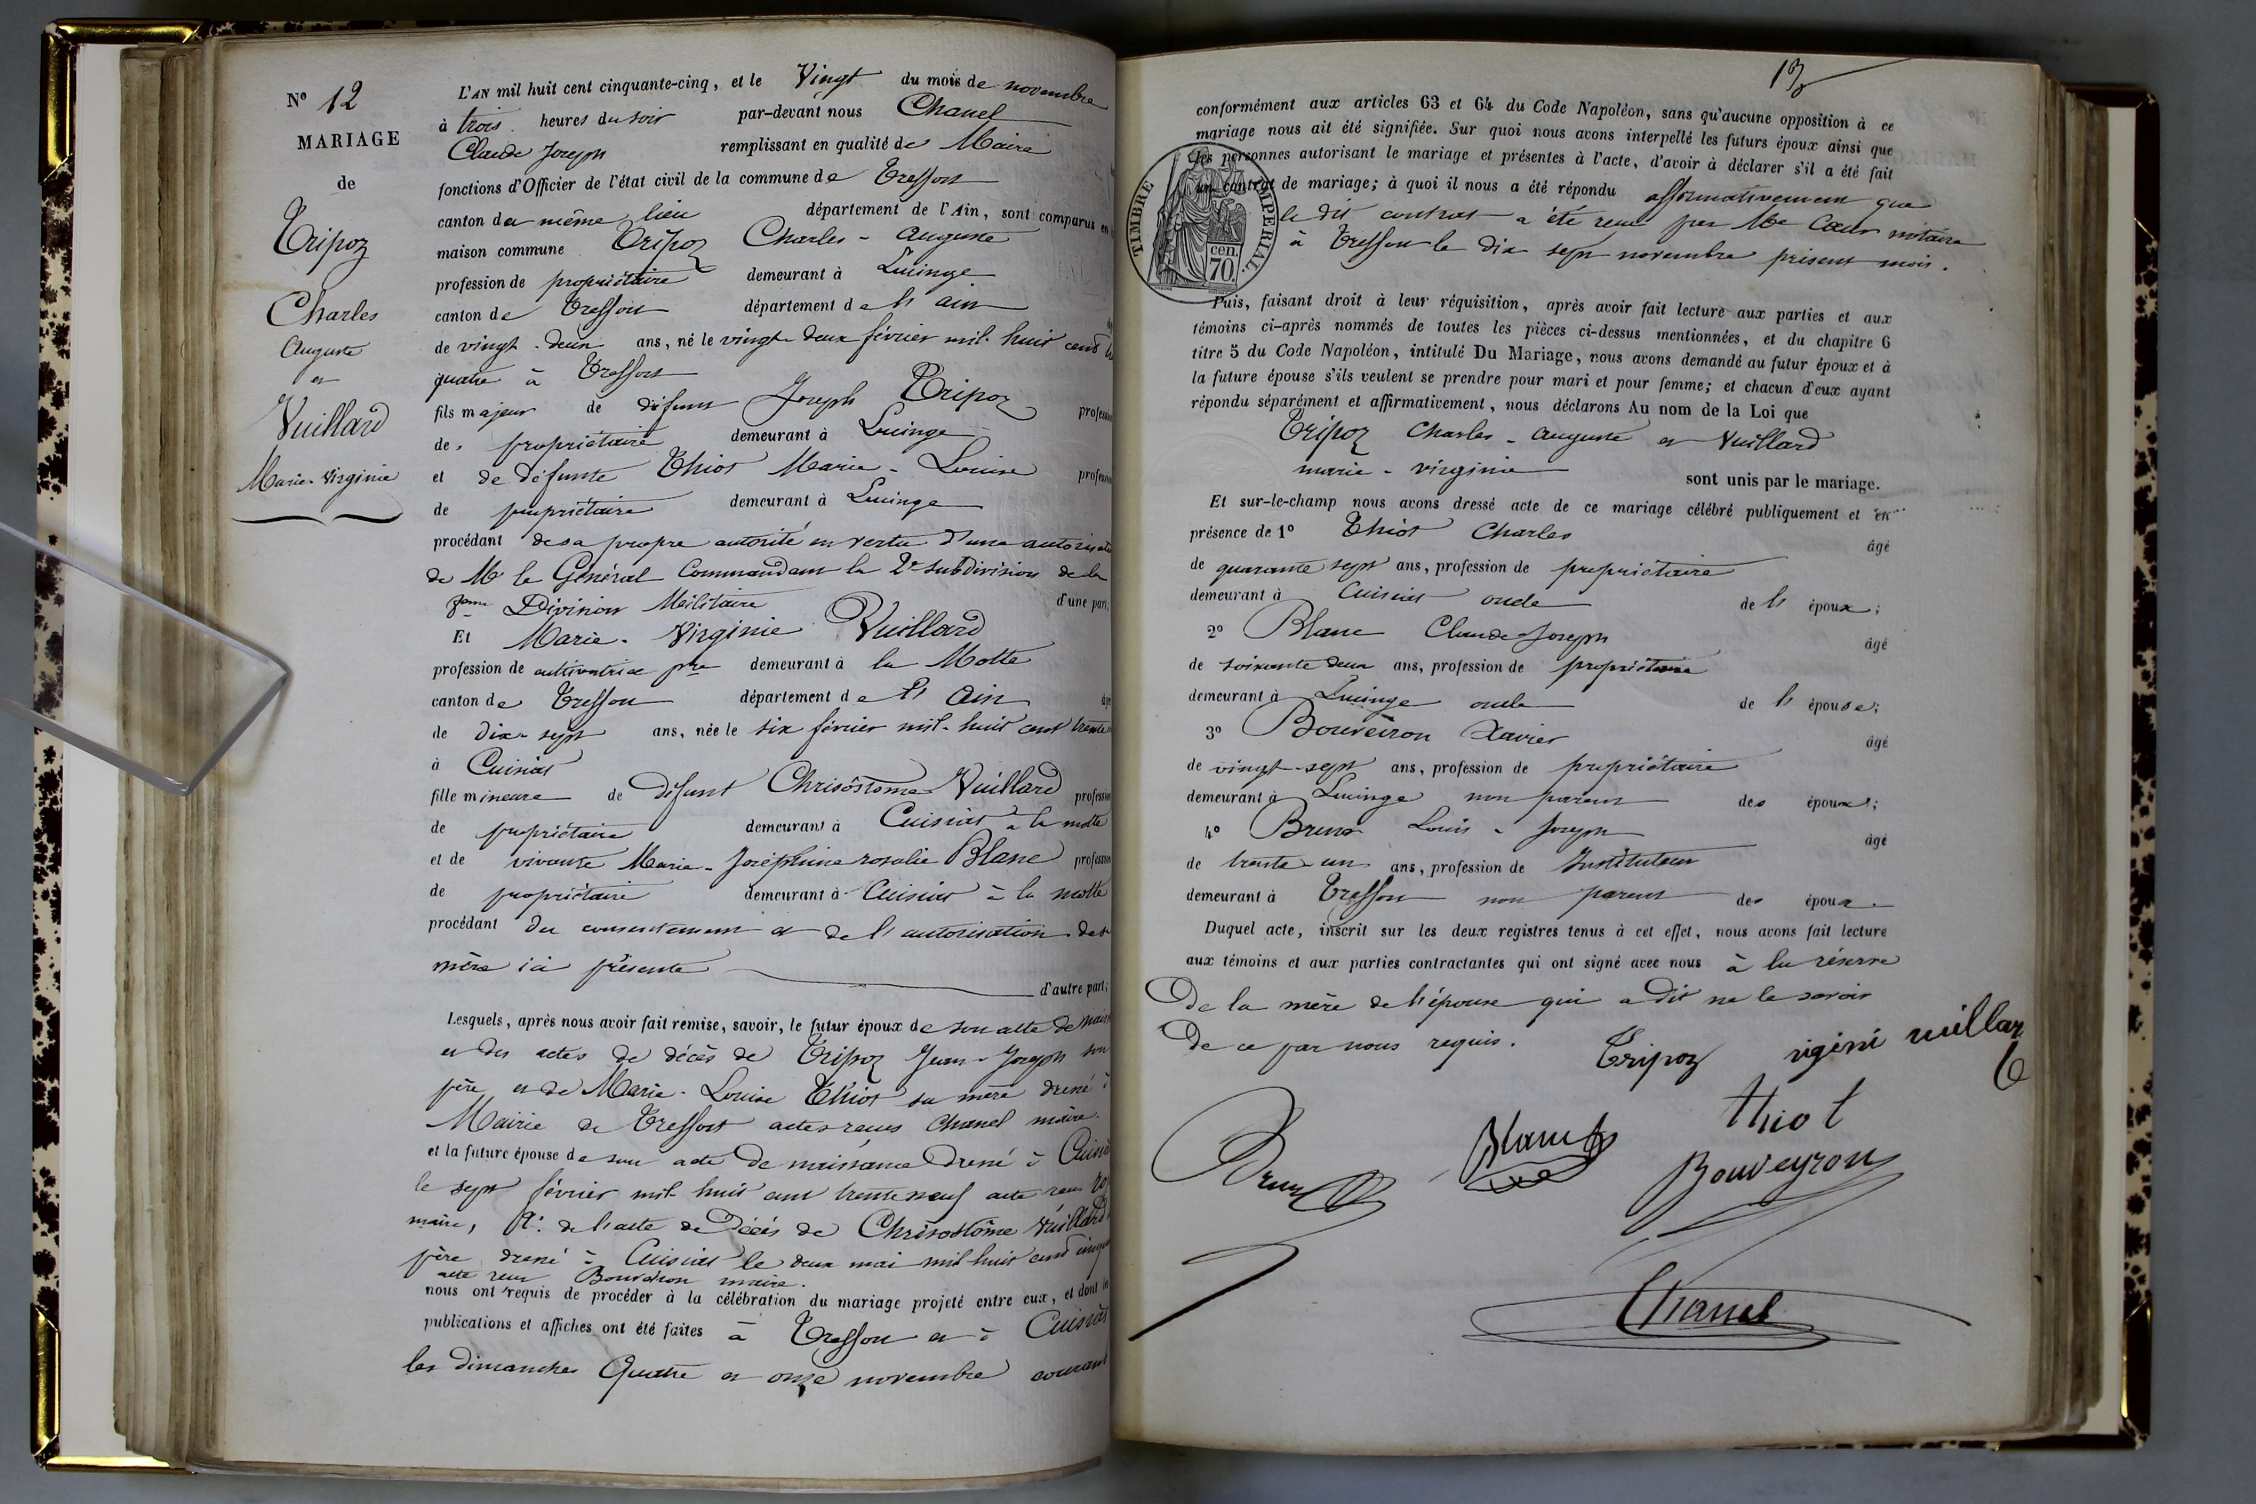 N° 12
MARIAGE
de
Tripoz
Charles
Auguste
et
Vuillard
Marie-Virginie
L'AN mil huit cent cinquante-cinq, et le Vingt du mois de novembre
à trois heures du soir par-devant nous Chanel
Claude Joseph remplissant en qualité de Maire
fonctions d'Officier de l'état civil de la commune de Treffort
canton du même lieu département de l'Ain, sont comparus en
maison commune Tripoz Charles-Auguste
profession de propriétaire demeurant à Lucinge
canton de Treffort département de l'ain
de vingt-deux ans, né le vingt-deux février mil huit cent
quatre à Treffort
fils majeur de défunt Joseph Tripoz profession
de propriétaire demeurant à Lucinge
et de défunte Thiot Marie-Louise profession
de propriétaire demeurant à Lucinge
procédant de sa propre autorité en vertu d'une autorisat
de Mr le Général Commandant la 2e subdivision de la
Division Militaire d'une part;
Et Marie-Virginie Vuillard
profession de cultivatrice pre demeurant à la Motte
canton de Treffort département de l'Ain
de dix-sept ans, née le six février mil-huit cent trente
à Cuisiat
fille mineure de défunt Chrisôstome Vuillard profession
de propriétaire demeurant à Cuisiat à la motte
et de vivante Marie-Joséphine rosalie Blanc profession
de propriétaire demeurant à Cuisiat à la motte
procédant du consentement et de l'autorisation de sa
mère ici présente
d'autre part;
Lesquels, après nous avoir fait remise, savoir, le futur époux de son acte de naiss
et des actes de décès de Tripoz Jean-Joseph son
père et de Marie-Louise Thiot sa mère dressé à
Mairie de Treffort actes reçus Chanel maire.
et la future épouse de son acte de naissance dressé à Cuisiat
le sept février mil huit cent trente neuf acte reçu
maire, de l'acte de Décès de Chrisostôme Vuillard
père dressé à Cuisiat le deux mai mil huit cent cinqu
acte reçu Bouvéron maire.
nous ont requis de procéder à la célébration du mariage projeté entre eux, et dont les
publications et affiches ont été faites à Treffort et à Cuisiat
les dimanches Quatre et onze novembre courant
13
conformément aux articles 63 et 64 du Code Napoléon, sans qu'aucune opposition à ce
mariage nous ait été signifiée. Sur quoi nous avons interpellé les futurs époux ainsi que
les personnes autorisant le mariage et présentes à l'acte, d'avoir à déclarer s'il a été fait
un contrat de mariage; à quoi il nous a été répondu affirmativement que
le dit contrat a été reçu par Me Cœur notaire
à Treffort le dix sept novembre présent mois.
TIMBRE IMPERIAL.
cen.
70.
Puis, faisant droit à leur réquisition, après avoir fait lecture aux parties et aux
témoins ci-après nommés de toutes les pièces ci-dessus mentionnées, et du chapitre 6
titre 5 du Code Napoléon, intitulé Du Mariage, nous avons demandé au futur époux et à
la future épouse s'ils veulent se prendre pour mari et pour femme; et chacun d'eux ayant
répondu séparément et affirmativement, nous déclarons Au nom de la Loi que
Tripoz Charles-Auguste et Vuillard
marie-virginie sont unis par le mariage.
Et sur-le-champ nous avons dressé acte de ce mariage célébré publiquement et en
présence de 1° Thiot Charles âgé
de quarante sept ans, profession de propriétaire
demeurant à Cuisiat oncle de l'époux;
2° Blanc Claude-Joseph âgé
de soixante deux ans, profession de propriétaire
demeurant à Lucinge oncle de l'épouse;
3° Bouveiron Xavier âgé
de vingt-sept ans, profession de propriétaire
demeurant à Lucinge non parent des époux;
4° Brun Louis-Joseph âgé
de trente-un ans, profession de Instituteur
demeurant à Treffort non parent des époux
Duquel acte, inscrit sur les deux registres tenus à cet effet, nous avons fait lecture
aux témoins et aux parties contractantes qui ont signé avec nous à la réserve
De la mère de l'épouse qui a dit ne le savoir
De ce par nous requis.
Tripoz vigini vuillar
Thiot
Brun Blanc
Bouveyron
Chanel